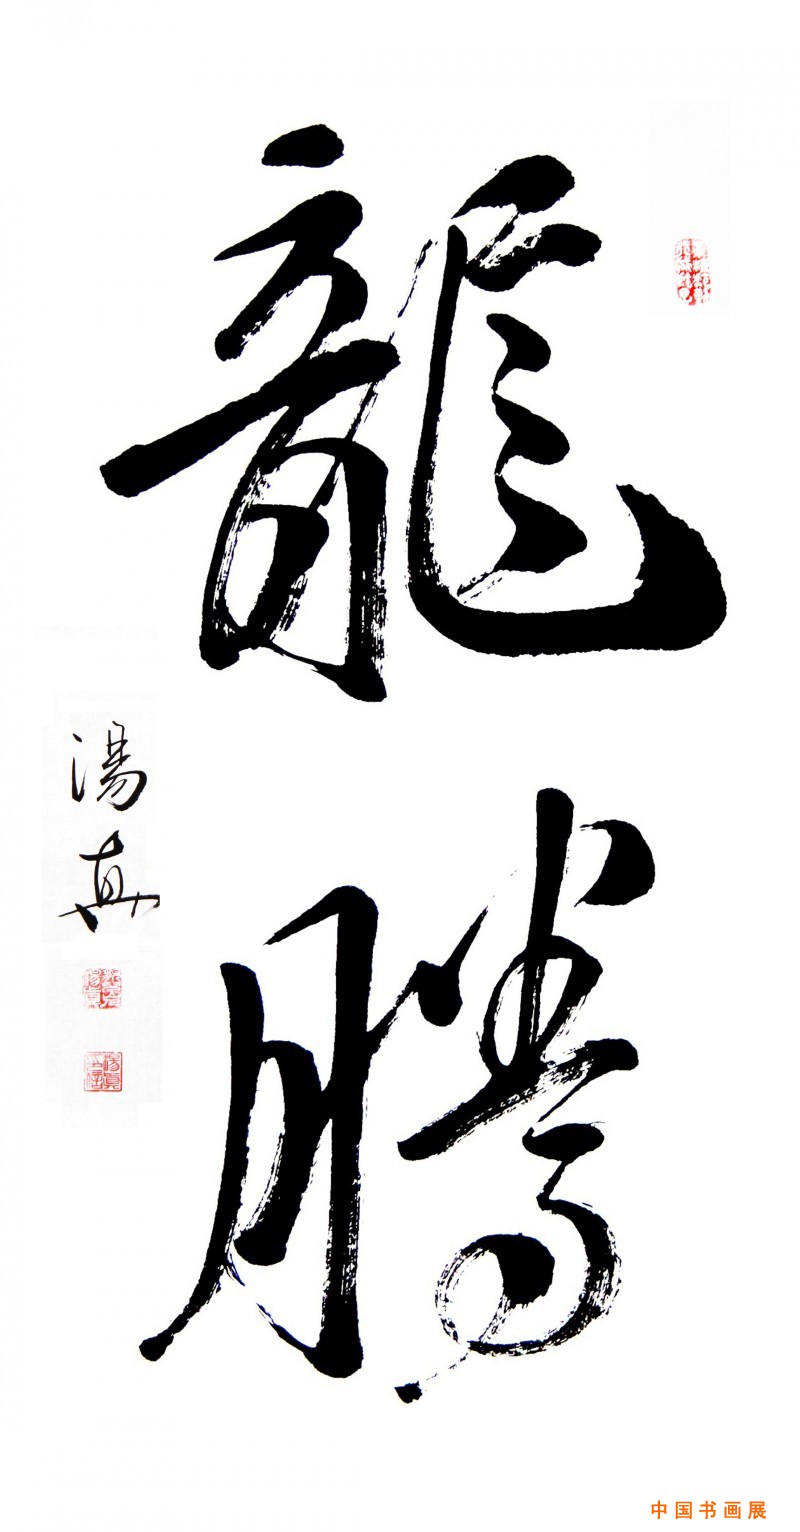 龍
騰
湯真
中国书画展